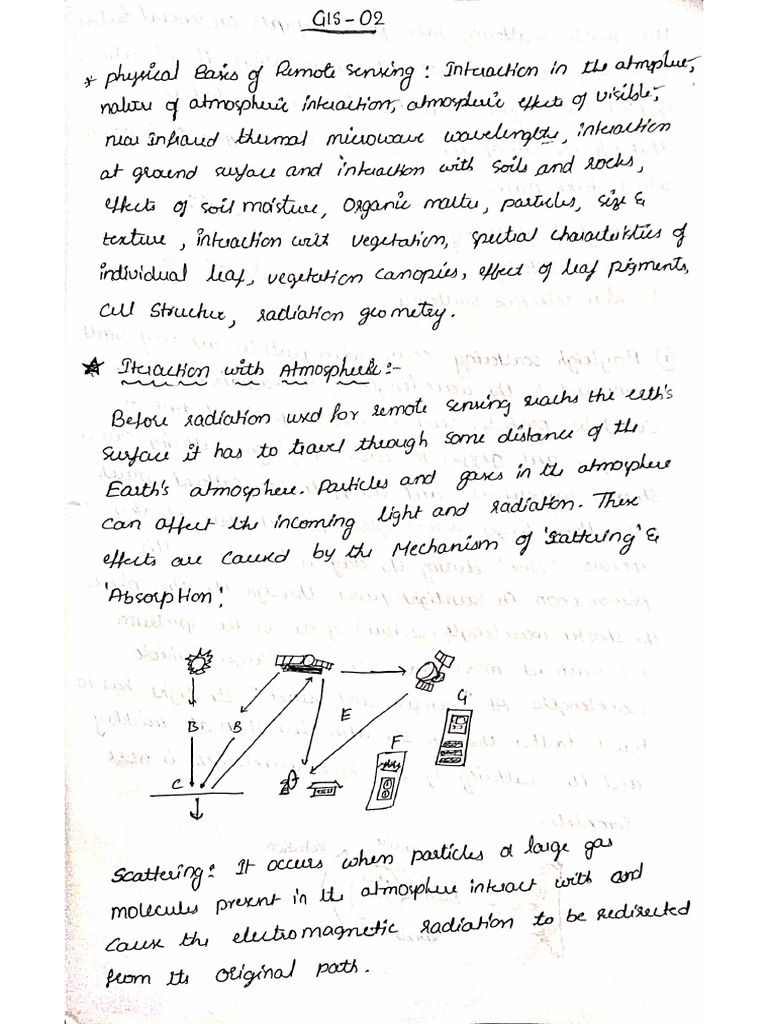 GIS-02
* Physical Basis of Remote Sensing : Interaction in the atmphere,
nature of atmospheric interaction, atmospheric effects of visible,
near Infrared thermal microwave wavelengths, interaction
at ground surface and interaction with soils and rocks,
effects of soil moisture, Organic matter, particles, size &
texture, interaction with vegetation, spectral characteristics of
individual leaf, vegetation canopies, effect of leaf pigments,
Cell Structure, radiation geometry.
* Iteraction with Atmospheric:-
Before radiation used for remote sensing reachs the erth's
surface it has to travel through some distance of the
Earth's atmosphere. Particles and gases in the atmosphere
can affect the incoming light and radiation. These
effects are caused by the Mechanism of 'scattering' &
'Absorption'.
B B E
G
F
C
Scattering: It occurs when particles or large gas
molecules present in the atmosphere interact with and
cause the electromagnetic radiation to be redirected
from its original path.